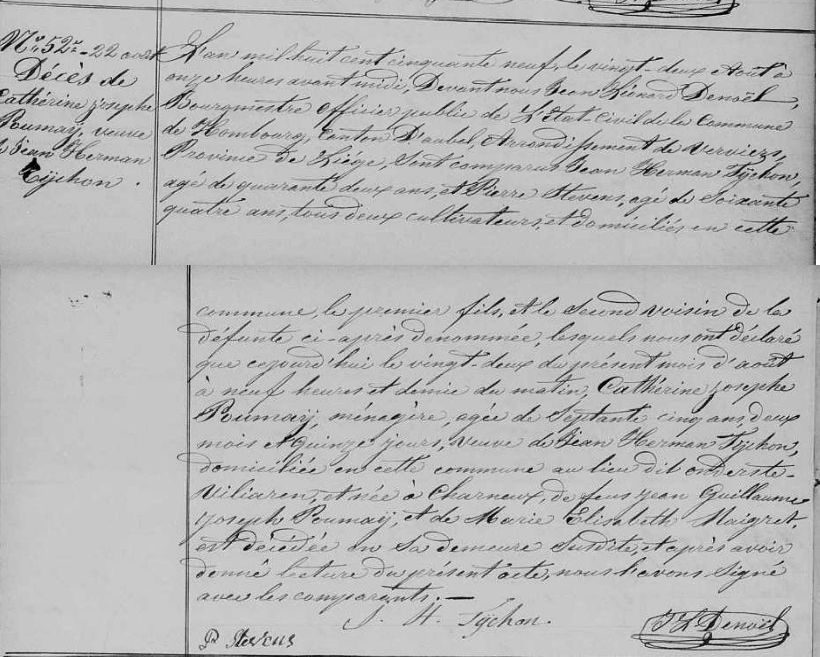 N° 52 - 22 août
Décès de
Cathérine josephe
Poumaÿ, veuve
de Jean Herman
Tÿchon.
L'an mil huit cent cinquante neuf, le vingt-deux Août à
onze heures avant midi, Devant nous Jean Léonard Denoël,
Bourgmestre Officier public de L'Etat-Civil de la Commune
de Hombourg, Canton D'aubel, Arrondissement de Verviers,
Province de Liège, Sont comparus Jean Herman Tÿchon,
agé de quarante deux ans, et Pierre Stevens, agé de Soixante
quatre ans, tous deux cultivateurs, et domiciliés en cette
commune, le premier fils, et le second voisin de la
défunte ci-après denommée, lesquels nous ont déclaré
que cejourd'hui le vingt-deux du présent mois d'août
à neuf heures et demie du matin, Cathérine josephe
Poumaÿ, ménagère, agée de Septante cinq ans, deux
mois et Quinze jours, veuve de Jean Herman Tÿchon,
domiciliée en cette commune au lieu dit onderste-
Viliaren, et née à Charneux, de feus jean Guillaume
joseph Poumaÿ, et de Marie Elisabeth Maigret,
est décédée en Sa demeure Susdite, et après avoir
donné lecture du présent acte, nous l'avons Signé
avec les comparants. —
J. H. Tÿchon.
Pr Stevens
J L Denoël